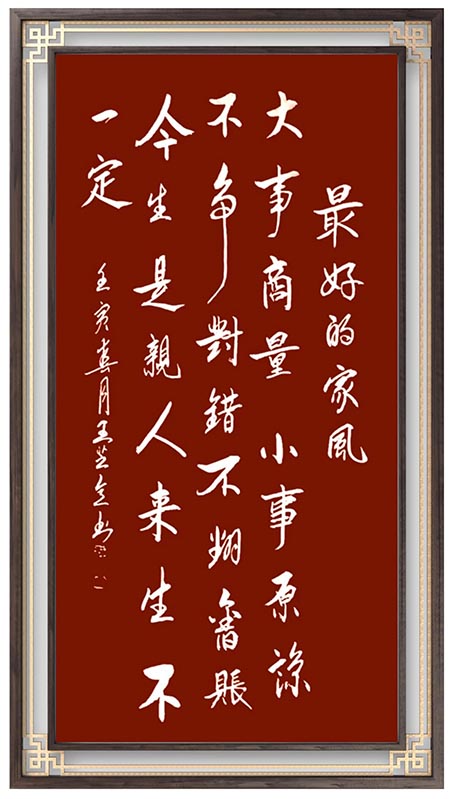 最好的家風
大事商量 小事原諒
不争對錯不翻舊賬
今生是親人来生不
一定
壬寅春月王芝書